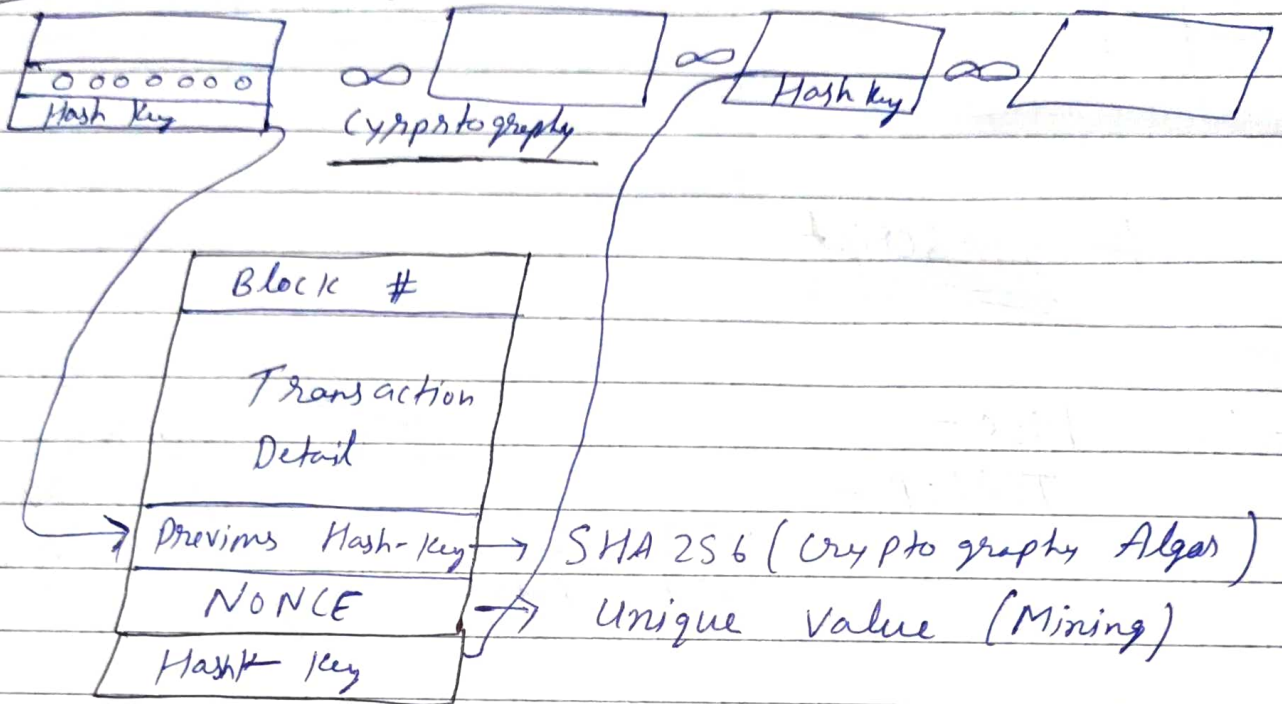 0 0 0 0 0 0 0
Hash Key
Cyrprtography
Hash key
Block #
Transaction
Detail
Previous Hash-Key → SHA 256 (Cryptography Algos)
NONCE → Unique Value (Mining)
Hash Key